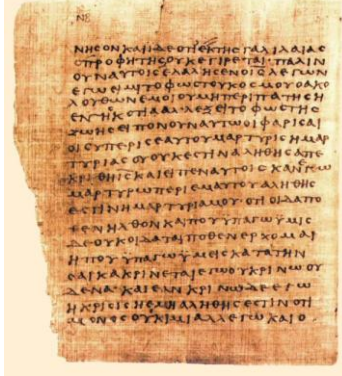 ΝΗϹΟΝΚΑΙΙΔΕΟΤΙΕΚΤΗϹΓΑΛΙΛΑΙΑϹ
ΟΠΡΟΦΗΤΗϹΟΥΚΕΓΙΡΕΤΑΙ·ΠΑΛΙΝ
ΟΥΝΑΥΤΟΙϹΕΛΑΛΗϹΕΝΟΙ̅Ϲ̅ΛΕΓΩΝ
ΕΓΩΕΙΜΙΤΟΦΩϹΤΟΥΚΟϹΜΟΥΟΑΚΟ
ΛΟΥΘΩΝΕΜΟΙΟΥΜΗΠΕΡΙΠΑΤΗϹΗ
ΕΝΤΗϹΚΟΤΙΑΑΛΛΕΞΕΙΤΟΦΩϹΤΗϹ
ΖΩΗϹΕΙΠΟΝΟΥΝΑΥΤΩΟΙΦΑΡΙϹΑΙ
ΟΙϹΥΠΕΡΙϹΕΑΥΤΟΥΜΑΡΤΥΡΙϹΗΜΑΡ
ΤΥΡΙΑϹΟΥΟΥΚΕϹΤΙΝΑΛΗΘΗϹΑΠΕ
ΚΡΙΘΗΙ̅Ϲ̅ΚΑΙΕΙΠΕΝΑΥΤΟΙϹΚΑΝΕΓΩ
ΜΑΡΤΥΡΩΠΕΡΙΕΜΑΥΤΟΥΑΛΗΘΗϹ
ΕϹΤΙΝΗΜΑΡΤΥΡΙΑΜΟΥΟΤΙΟΙΔΑΠΟ
ΘΕΝΗΛΘΟΝΚΑΙΠΟΥΫΠΑΓΩΫΜΙϹ
ΔΕΟΥΚΟΙΔΑΤΑΙΠΟΘΕΝΕΡΧΟΜΑΙ
ΗΠΟΥΫΠΑΓΩΫΜΕΙϹΚΑΤΑΤΗΝ
ϹΑΡΚΑΚΡΙΝΕΤΑΙΕΓΩΟΥΚΡΙΝΩΟΥ
ΔΕΝΑ·ΚΑΙΕΑΝΚΡΙΝΩΔΕΕΓΩ
ΗΚΡΙϹΙϹΗΕΜΗΑΛΗΘΗϹΕϹΤΙΝΟΤΙ
ΜΟΝΟϹΟΥΚΙΜΙΑΛΛΕΓΩΚΑΙΟ